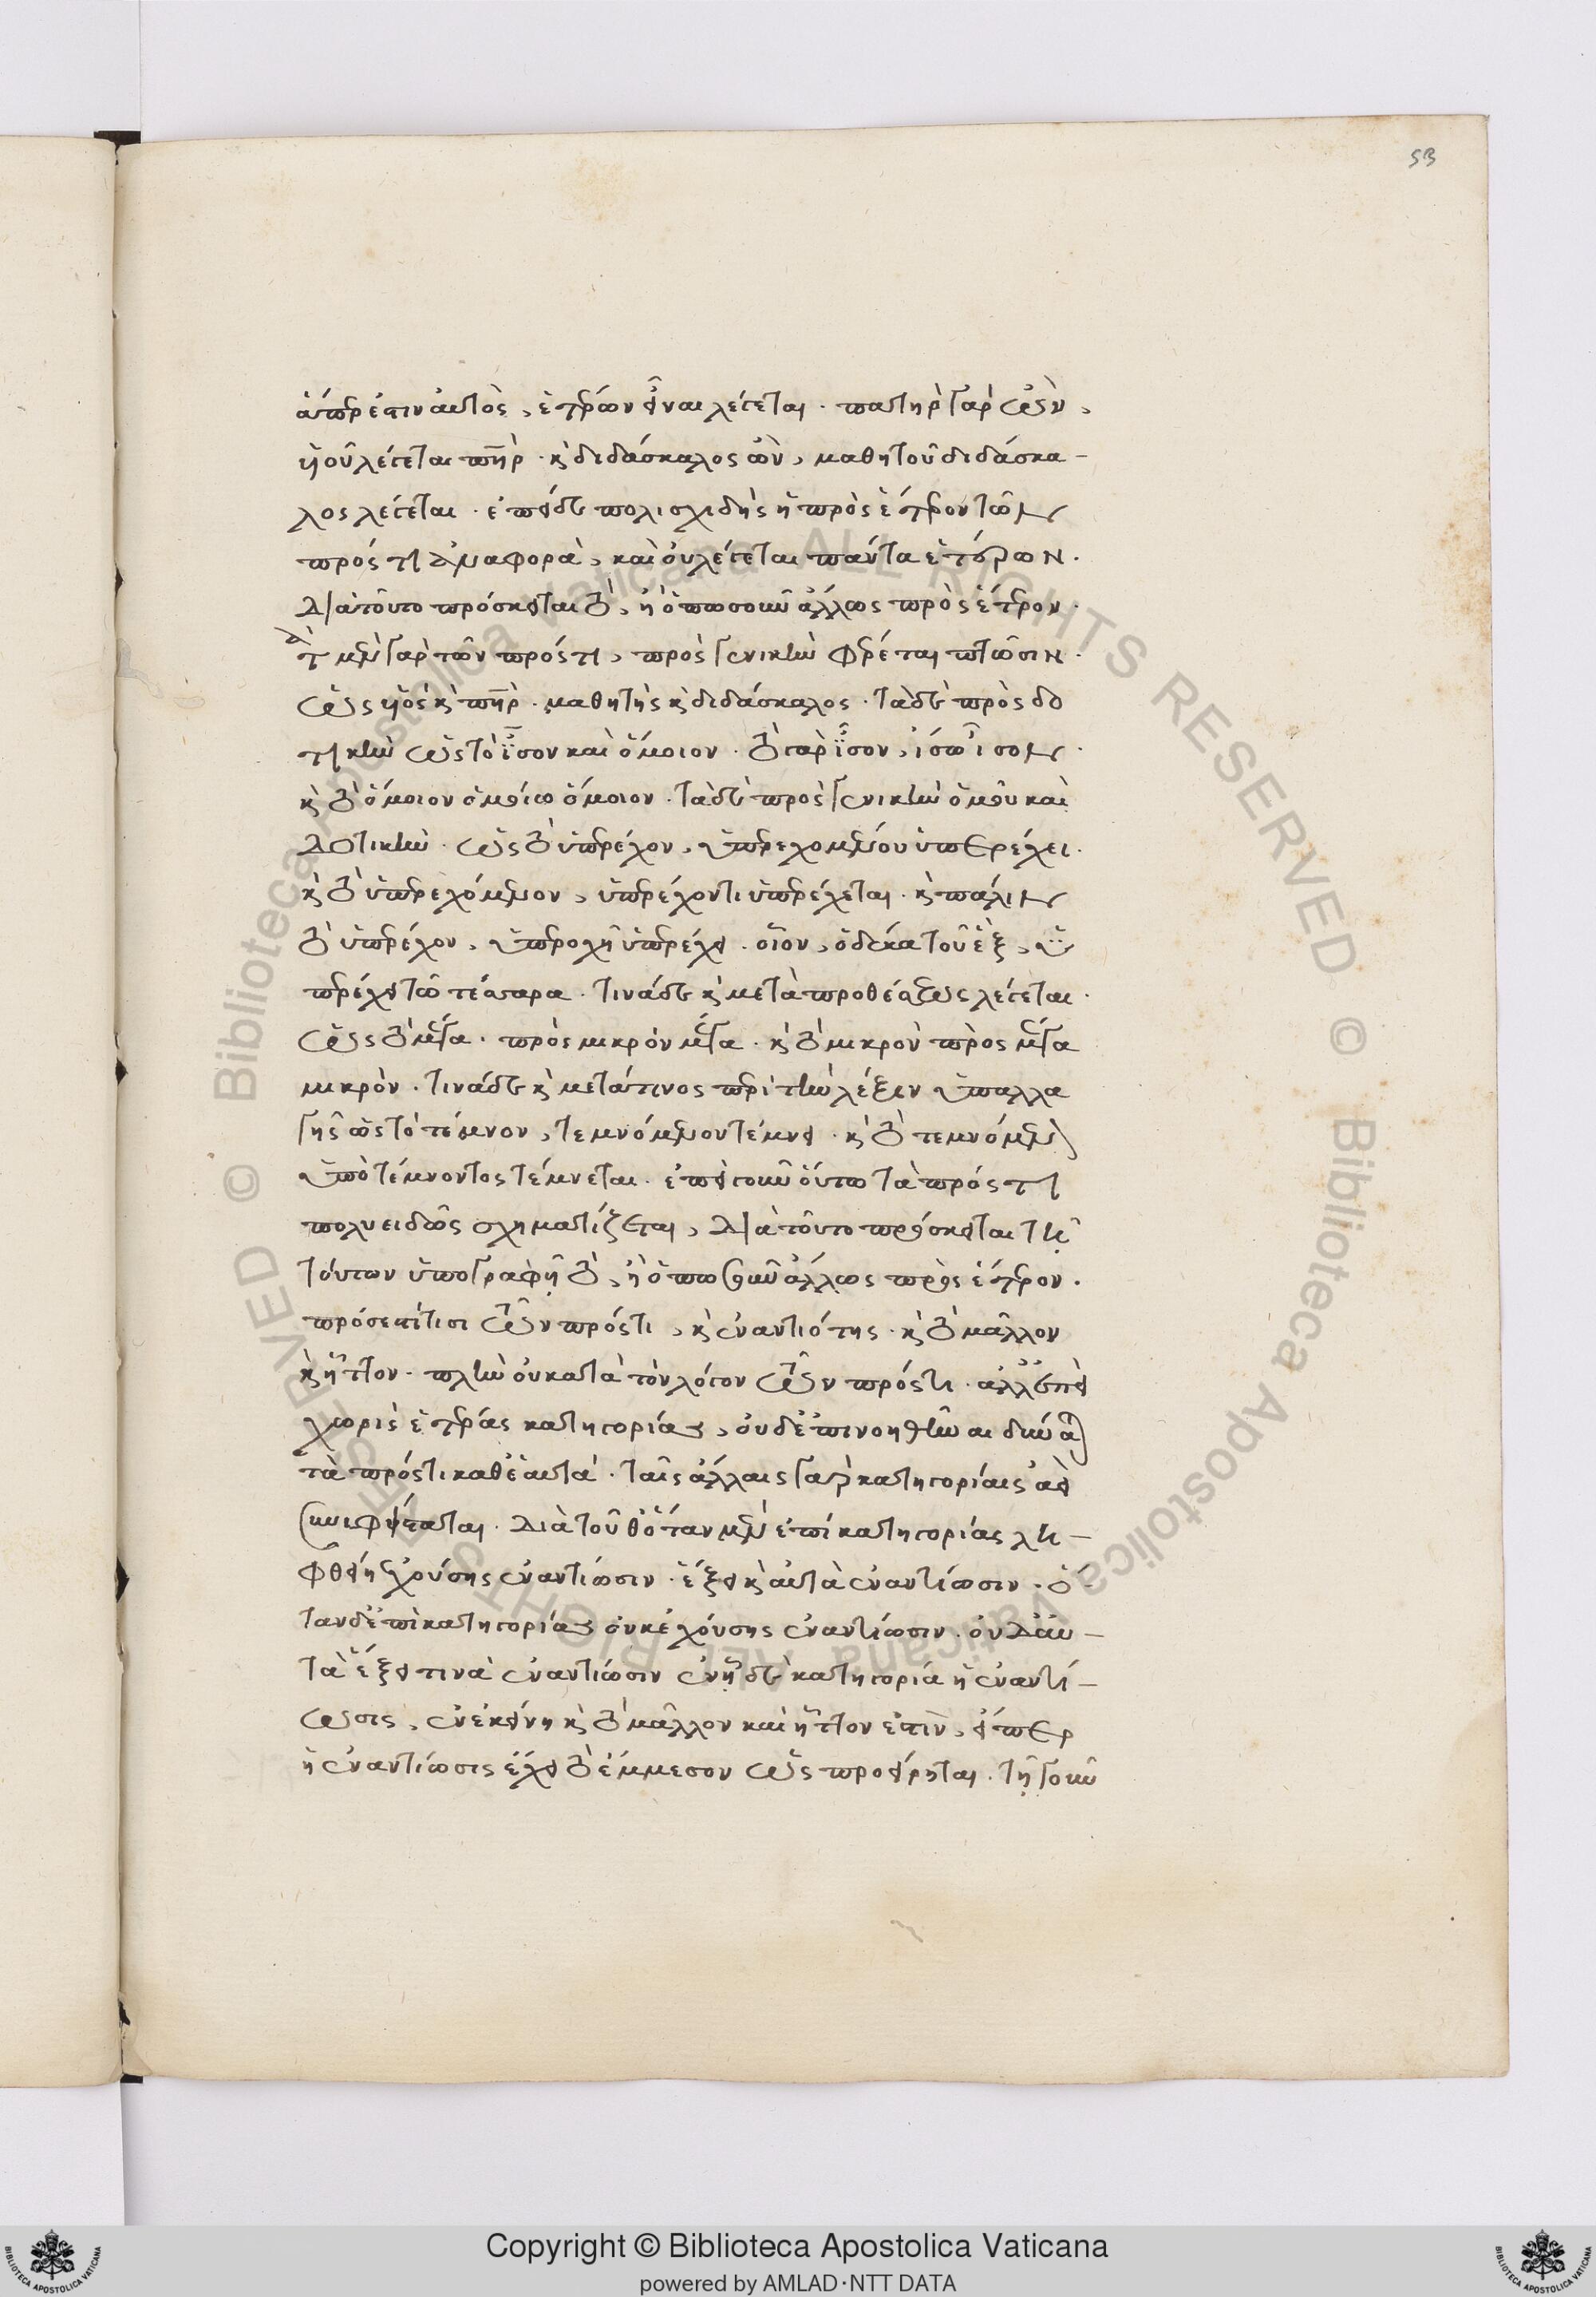 53
ἅπερ ἐστὶν αὐτὸς, ἑτέρων εἶναι λέγεται. πατὴρ γὰρ ὢν,
υἱοῦ λέγεται πηρ. κ διδάσκαλος ὢν, μαθητοῦ διδάσκα-
λος λέγεται. ἐπεὶ δὲ πολισχιδὴς ἡ πρὸς ἕτερον τῶν
πρός τι ἀναφορὰ, καὶ οὐ λέγεται πάντα ἑτέρων.
διὰ τοῦτο πρόσκειται τὸ, ἢ ὁπωσοῦν ἄλλως πρὸς ἕτερον.
τὰ μὲν γὰρ τῶν πρός τι, πρὸς γενικὴν φέρεται πτῶσιν.
ὡς υἱὸς κ πηρ. μαθητὴς κ διδάσκαλος. τὰ δὲ πρὸς δο
τικὴν ὡς τὸ ἴσον καὶ ὅμοιον. τὸ γὰρ ἴσον, ἴσω ἴσον.
κ τὸ ὅμοιον ὁμοίω ὅμοιον. τὰ δὲ πρὸς γενικὴν ὁμοῦ καὶ
δοτικὴν. ὡς τὸ ὑπερέχον, ὑπερεχομένου ὑπερέχει.
κ τὸ ὑπερεχόμενον, ὑπερέχοντι ὑπερέχεται. κ πάλιν
τὸ ὑπερέχον, ὑπεροχῆ ὑπερέχει. οἷον, ὁ δέκα τοῦ ἓξ, ὑ
περέχει τῶ τέσσαρα. τινὰ δὲ κ μετὰ προθέσεως λέγεται.
ὡς τὸ μέγα. πρὸς μικρὸν μέγα. κ τὸ μικρὸν πρὸς μέγα
μικρὸν. τινὰ δὲ κ μετά τινος περὶ τὴν λέξιν ὑπαλλα
γῆς ὡς τὸ τέμνον, τεμνόμενον τέμνει. κ τὸ τεμνόμενον
ὑπὸ τέμνοντος τέμνεται. ἐπεὶ γοῦν οὕτω τὰ πρός τι
πολυειδῶς σχηματίζεται, διὰ τοῦτο πρόσκειται τῆ
τούτων ὑπογραφῆ τὸ, ἢ ὁπωσοῦν ἄλλως πρὸς ἕτερον.
πρόσεστί τισι τῶν πρός τι, κ ἐναντιότης. κ τὸ μᾶλλον
κ ἧττον. πλὴν οὐ κατὰ τὸν λόγον τῶν πρός τι. ἀλλ' ἐπεὶ
χωρὶς ἑτέρας κατηγορίας, οὐδ' ἐπινοηθῆναι δύναται
τὰ πρός τι καθ' ἑαυτά. ταῖς ἄλλαις γὰρ κατηγορίαις ἀεὶ
συνυφίσταται. διὰ τοῦθ' ὅταν μὲν ἐπὶ κατηγορίας λη-
φθείη ἐχούσης ἐναντίωσιν. ἕξει κ αὐτὰ ἐναντίωσιν. ὅ-
ταν δ' ἐπὶ κατηγορίας οὐκ ἐχούσης ἐναντίωσιν. οὐδ' αὐ-
τὰ ἕξει τινὰ ἐναντίωσιν ἐν ἧ δὲ κατηγορία ἡ ἐναντί-
ωσις, ἐν ἐκείνη κ τὸ μᾶλλον καὶ ἧττον ἐστὶν, εἴπερ
ἡ ἐναντίωσις ἔχει τὸ ἔμμεσον ὡς προείρηται. τῆ γοῦν
Copyright © Biblioteca Apostolica Vaticana
powered by AMLAD·NTT DATA